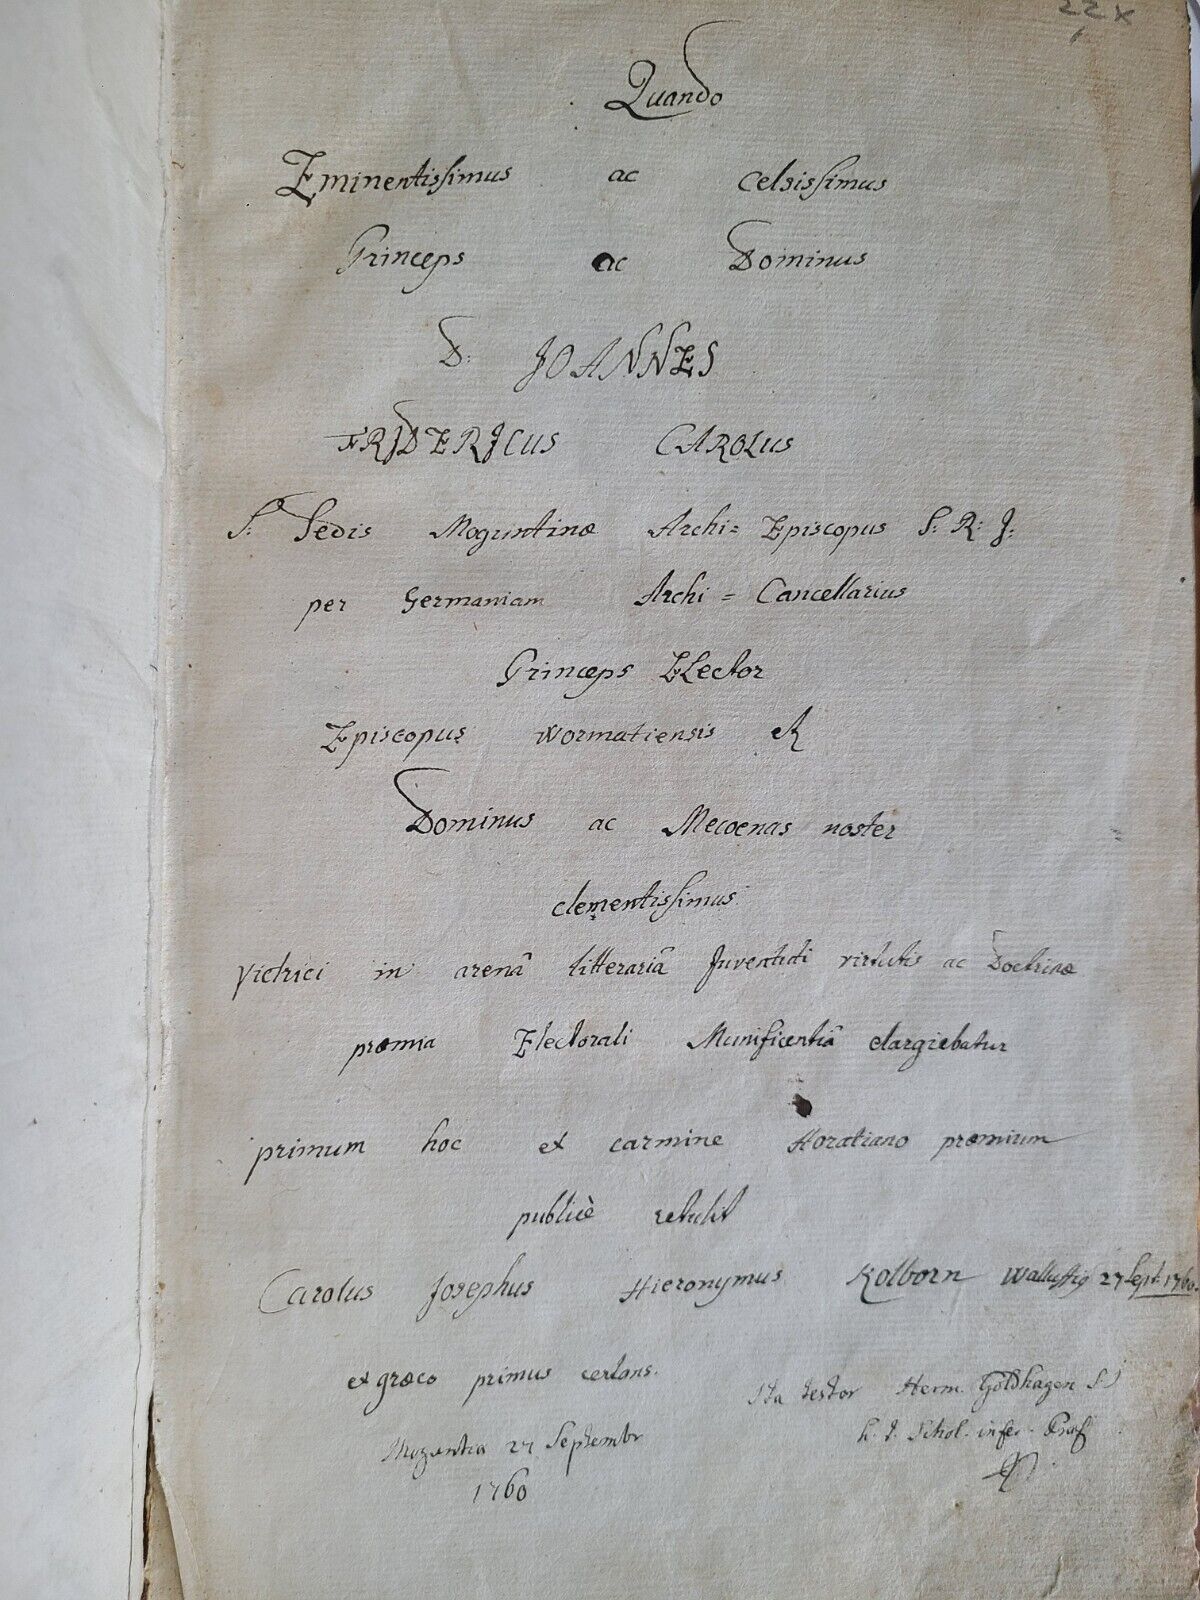 22x
Quando
Eminentissimus ac Celsissimus
Princeps ac Dominus
D: JOANNES
FRIDERICUS CAROLUS
S: Sedis Moguntinæ Archi= Episcopus S: R: J:
per Germaniam Archi = Cancellarius
Princeps Elector
Episcopus wormatiensis et
Dominus ac Mecoenas noster
clementissimus
Victrici in arenâ litterariâ Juventuti virtutis ac Doctrinæ
præmia Electorali Munificentiâ elargiebatur
primum hoc ex carmine Horatiano præmium
publicè retulit
Carolus Josephus Hieronymus Kolborn 27 Sept. 1760.
ex græco primus certans.
Ita testor Herm. Goldhagen SJ
h. t. Schol. infer. Præf
27 Septembr
1760